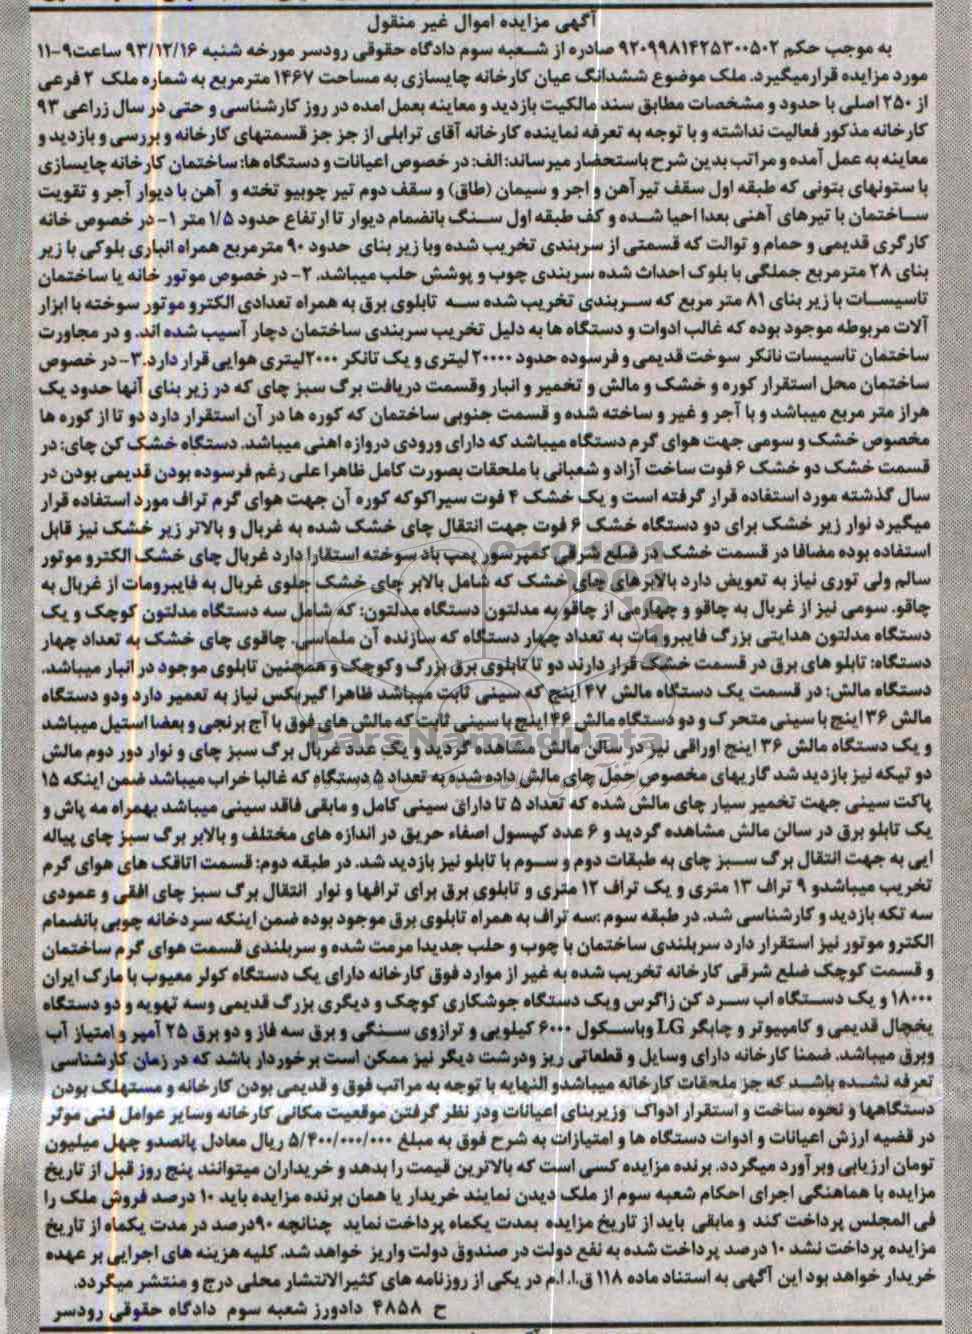 آگهی مزایده اموال غیر منقول
به موجب حکم ۹۲۰۹۹۸۱۴۲۵۳۰۰۵۰۲ صادره از شعبه سوم دادگاه حقوقی رودسر مورخه شنبه ۹۳/۱۲/۱۶ ساعت۹-۱۱
مورد مزایده قرارمیگیرد. ملک موضوع ششدانگ عیان کارخانه چایسازی به مساحت ۱۴۶۷ مترمربع به شماره ملک ۲ فرعی
از ۲۵۰ اصلی با حدود و مشخصات مطابق سند مالکیت بازدید و معاینه بعمل امده در روز کارشناسی و حتی در سال زراعی ۹۳
کارخانه مذکور فعالیت نداشته و با توجه به تعرفه نماینده کارخانه آقای ترابلی از جز جز قسمتهای کارخانه و بررسی و بازدید و
معاینه به عمل آمده و مراتب بدین شرح باستحضار میرساند: الف: در خصوص اعیانات و دستگاه ها: ساختمان کارخانه چایسازی
با ستونهای بتونی که طبقه اول سقف تیرآهن و اجر و سیمان (طاق) و سقف دوم تیر چوبیو تخته و آهن با دیوار آجر و تقویت
ساختمان با تیرهای آهنی بعدا احیا شده و کف طبقه اول سنگ بانضمام دیوار تا ارتفاع حدود ۱/۵ متر ۱- در خصوص خانه
کارگری قدیمی و حمام و توالت که قسمتی از سربندی تخریب شده وبا زیر بنای حدود ۹۰ مترمربع همراه انباری بلوکی با زیر
بنای ۲۸ مترمربع جملگی با بلوک احداث شده سربندی چوب و پوشش حلب میباشد. ۲- در خصوص موتور خانه یا ساختمان
تاسیسات با زیر بنای ۸۱ متر مربع که سربندی تخریب شده سه تابلوی برق به همراه تعدادی الکترو موتور سوخته با ابزار
آلات مربوطه موجود بوده که غالب ادوات و دستگاه ها به دلیل تخریب سربندی ساختمان دچار آسیب شده اند. و در مجاورت
ساختمان تاسیسات تانکر سوخت قدیمی و فرسوده حدود ۲۰۰۰۰ لیتری و یک تانکر ۲۰۰۰لیتری هوایی قرار دارد.۳- در خصوص
ساختمان محل استقرار کوره و خشک و مالش و تخمیر و انبار وقسمت دریافت برگ سبز چای که در زیر بنای آنها حدود یک
هراز متر مربع میباشد و با آجر و غیر و ساخته شده و قسمت جنوبی ساختمان که کوره ها در آن استقرار دارد دو تا از کوره ها
مخصوص خشک و سومی جهت هوای گرم دستگاه میباشد که دارای ورودی دروازه اهنی میباشد. دستگاه خشک کن چای: در
قسمت خشک دو خشک ۶ فوت ساخت آزاد و شعبانی با ملحقات بصورت کامل ظاهرا علی رغم فرسوده بودن قدیمی بودن در
سال گذشته مورد استفاده قرار گرفته است و یک خشک ۴ فوت سیراکوکه کوره آن جهت هوای گرم تراف مورد استفاده قرار
میگیرد نوار زیر خشک برای دو دستگاه خشک ۶ فوت جهت انتقال چای خشک شده به غربال و بالاتر زیر خشک نیز قابل
استفاده بوده مضافا در قسمت خشک در ضلع شرقی کمپرسور پمپ باد سوخته استقارا دارد غربال چای خشک الکترو موتور
سالم ولی توری نیاز به تعویض دارد بالابرهای چای خشک که شامل بالابر چای خشک جلوی غربال به فایبرومات از غربال به
چاقو. سومی نیز از غربال به چاقو و چهارمی از چاقو به مدلتون دستگاه مدلتون: که شامل سه دستگاه مدلتون کوچک و یک
دستگاه مدلتون هدایتی بزرگ فایبرو مات به تعداد چهار دستگاه که سازنده آن ملماسی. چاقوی چای خشک به تعداد چهار
دستگاه: تابلو های برق در قسمت خشک قرار دارند دو تا تابلوی برق بزرگ وکوچک و همچنین تابلوی موجود در انبار میباشد.
دستگاه مالش: در قسمت یک دستگاه مالش ۴۷ اینچ که سینی ثابت میباشد ظاهرا گیربکس نیاز به تعمیر دارد ودو دستگاه
مالش ۳۶ اینچ با سینی متحرک و دو دستگاه مالش ۴۶ اینچ با سینی ثابت که مالش های فوق با آج برنجی و بعضا استیل میباشد
و یک دستگاه مالش ۳۶ اینچ اوراقی نیز در سالن مالش مشاهده گردید و یک عدد غربال برگ سبز چای و نوار دور دوم مالش
دو تیکه نیز بازدید شد گاریهای مخصوص حمل چای مالش داده شده به تعداد ۵ دستگاه که غالبا خراب میباشد ضمن اینکه ۱۵
پاکت سینی جهت تخمیر سیار چای مالش شده که تعداد ۵ تا دارای سینی کامل و مابقی فاقد سینی میباشد بهمراه مه پاش و
یک تابلو برق در سالن مالش مشاهده گردید و ۶ عدد کپسول اصفاء حریق در اندازه های مختلف و بالابر برگ سبز چای پیاله
ایی به جهت انتقال برگ سبز چای به طبقات دوم و سوم با تابلو نیز بازدید شد. در طبقه دوم: قسمت اتاقک های هوای گرم
تخریب میباشدو ۹ تراف ۱۳ متری و یک تراف ۱۲ متری و تابلوی برق برای ترافها و نوار انتقال برگ سبز چای افقی و عمودی
سه تکه بازدید و کارشناسی شد. در طبقه سوم :سه تراف به همراه تابلوی برق موجود بوده ضمن اینکه سردخانه چوبی بانضمام
الکترو موتور نیز استقرار دارد سربلندی ساختمان با چوب و حلب جدیدا مرمت شده و سربلندی قسمت هوای گرم ساختمان
و قسمت کوچک ضلع شرقی کارخانه تخریب شده به غیر از موارد فوق کارخانه دارای یک دستگاه کولر معیوب با مارک ایران
۱۸۰۰۰ و یک دستگاه اب سرد کن زاگرس ویک دستگاه جوشکاری کوچک و دیگری بزرگ قدیمی وسه تهویه و دو دستگاه
یخچال قدیمی و کامپیوتر و چاپگر LG وباسکول ۶۰۰۰ کیلویی و ترازوی سنگی و برق سه فاز و دو برق ۲۵ آمپر و امتیاز آب
وبرق میباشد. ضمنا کارخانه دارای وسایل و قطعاتی ریز ودرشت دیگر نیز ممکن است برخوردار باشد که در زمان کارشناسی
تعرفه نشده باشد که جز ملحقات کارخانه میباشدو النهایه با توجه به مراتب فوق و قدیمی بودن کارخانه و مستهلک بودن
دستگاهها و نحوه ساخت و استقرار ادواک وزیربنای اعیانات ودر نظر گرفتن موقعیت مکانی کارخانه وسایر عوامل فنی موثر
در قضیه ارزش اعیانات و ادوات دستگاه ها و امتیازات به شرح فوق به مبلغ ۵/۴۰۰/۰۰۰/۰۰۰ ریال معادل پانصدو چهل میلیون
تومان ارزیابی وبرآورد میگردد. برنده مزایده کسی است که بالاترین قیمت را بدهد و خریداران میتوانند پنج روز قبل از تاریخ
مزایده با هماهنگی اجرای احکام شعبه سوم از ملک دیدن نمایند خریدار یا همان برنده مزایده باید ۱۰ درصد فروش ملک را
فی المجلس پرداخت کند و مابقی باید از تاریخ مزایده بمدت یکماه پرداخت نماید چنانچه ۹۰درصد در مدت یکماه از تاریخ
مزایده پرداخت نشد ۱۰ درصد پرداخت شده به نفع دولت در صندوق دولت واریز خواهد شد. کلیه هزینه های اجرایی بر عهده
خریدار خواهد بود این آگهی به استناد ماده ۱۱۸ ق.ا.ا.م در یکی از روزنامه های کثیرالانتشار محلی درج و منتشر میگردد.
ح ۴۸۵۸ دادورز شعبه سوم دادگاه حقوقی رودسر
ParsNamadData